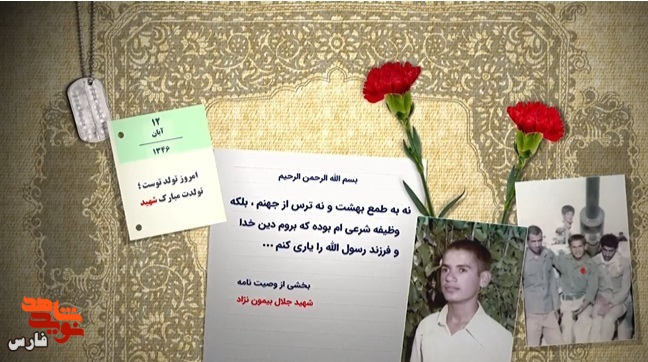 ۱۲
آبان
۱۳۴۶
امروز تولد توست ؛
تولدت مبارک شهید
بسم الله الرحمن الرحیم
نه به طمع بهشت و نه ترس از جهنم ، بلکه
وظیفه شرعی ام بوده که بروم دین خدا
و فرزند رسول الله را یاری کنم ...
بخشی از وصیت نامه
شهید جلال بیمون نژاد
نوید شاهد
فارس